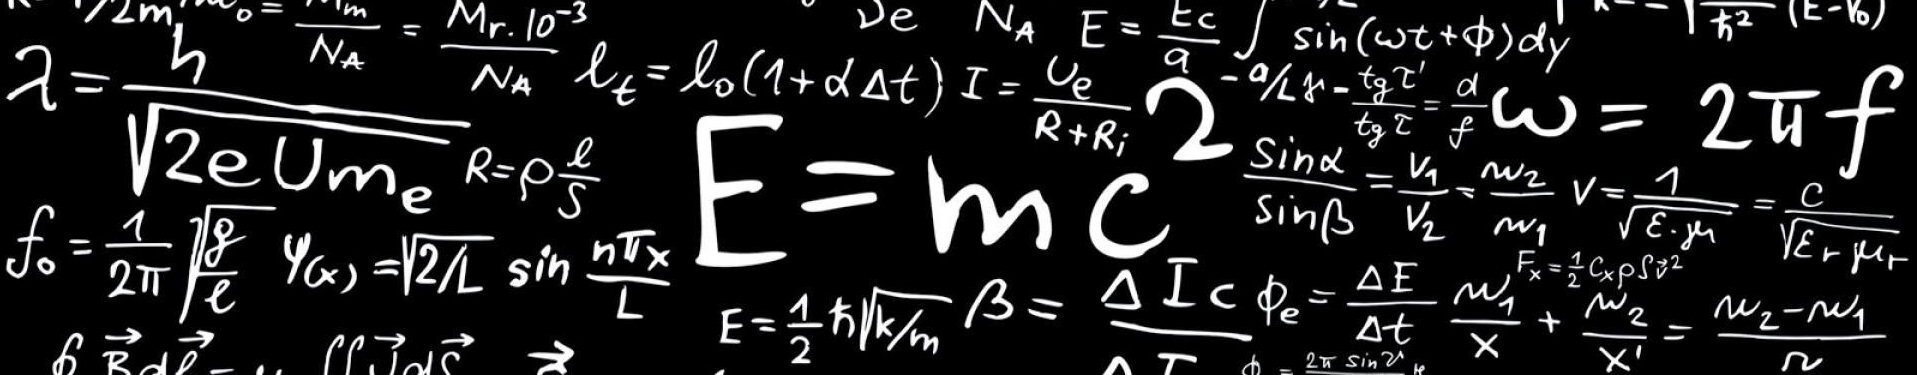 = Mm/NA = Mr.10⁻³/NA
υe NA E = Ec/a ∫ sin(ωt+ϕ)dy
ħ² (E-V₀)
λ = h/√2eUmₑ
ℓt = ℓ₀(1+αΔt)
I = Ue/R+Ri
tgτ'/tgτ = d/f
ω = 2πf
R=ρ ℓ/S
E=mc²
sinα/sinβ = v₁/v₂ = n₂/n₁
v = 1/√ε.μ = c/√εrμr
f₀ = 1/2π √g/ℓ
ψ(x) = √2/L sin nπx/L
Fx = ½CxρSv²
E = ½ħ√k/m
β = ΔIc
ϕe = ΔE/Δt
n₁/x + n₂/x' = n₂-n₁/r